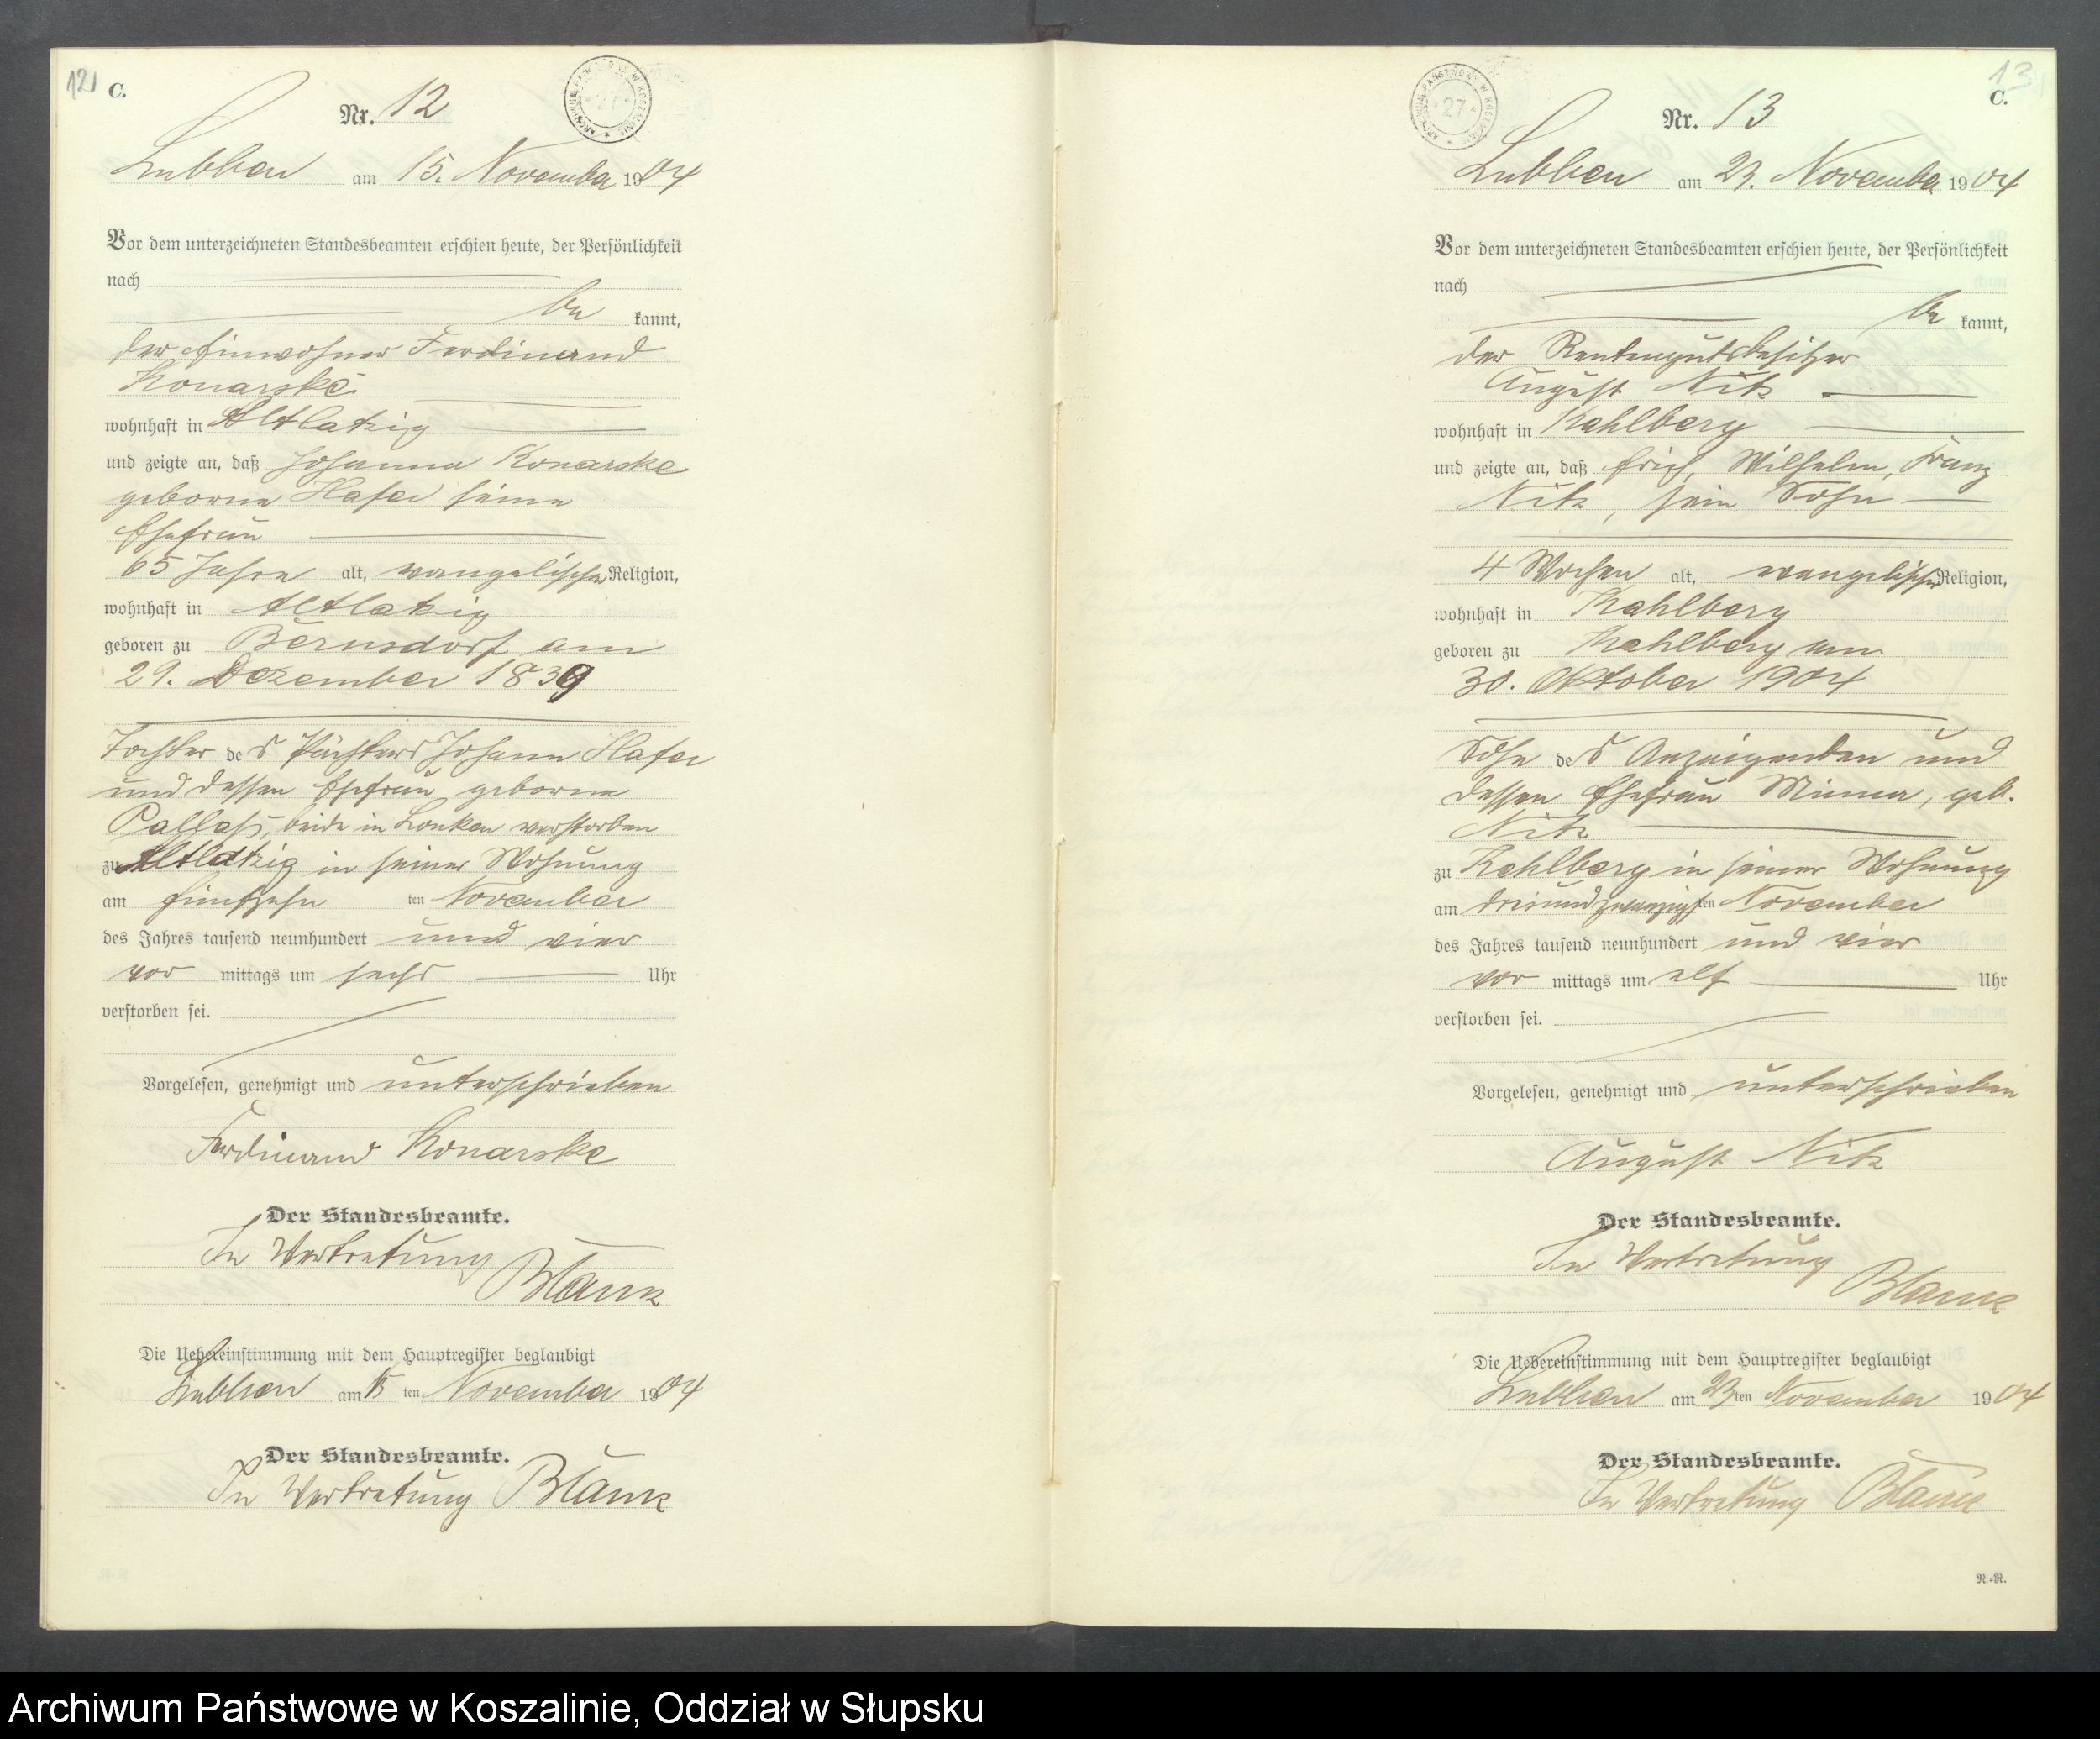 12
C.
Nr. 12
Lubben am 15. November 1904
Vor dem unterzeichneten Standesbeamten erschien heute, der Persönlichkeit
nach
be kannt,
der Einwohner Ferdinand
Konarske
wohnhaft in Altlatzig
und zeigte an, daß Johanna Konarske
geborne Hafer seine
Ehefrau
65 Jahre alt, evangelischer Religion,
wohnhaft in Altlatzig
geboren zu Bernsdorf am
29. Dezember 1839
Tochter des Pächters Johann Hafer
und dessen Ehefrau geborne
Pallaß, beide in Lonken verstorben
zu Altlatzig in seiner Wohnung
am fünfzehn ten November
des Jahres tausend neunhundert und vier
vor mittags um sechs Uhr
verstorben sei.
Vorgelesen, genehmigt und unterschrieben
Ferdinand Konarske
Der Standesbeamte.
In Vertretung
Blank
Die Uebereinstimmung mit dem Hauptregister beglaubigt
Lubben am 15 ten November 1904
Der Standesbeamte.
In Vertretung Blank
ARCHIWUM PAŃSTWOWE W KOSZALINIE
27
13
C.
Nr. 13
Lubben am 23. November 1904
Vor dem unterzeichneten Standesbeamten erschien heute, der Persönlichkeit
nach
be kannt,
der Rentengutsbesitzer
August Nitz
wohnhaft in Kahlberg
und zeigte an, daß Erich, Wilhelm, Franz
Nitz, sein Sohn
4 Wochen alt, evangelischer Religion,
wohnhaft in Kahlberg
geboren zu Kahlberg am
30. Oktober 1904
Sohn des Anzeigenden und
dessen Ehefrau Minna, geb.
Nitz
zu Kahlberg in seiner Wohnung
am dreiundzwanzigsten November
des Jahres tausend neunhundert und vier
vor mittags um elf Uhr
verstorben sei.
Vorgelesen, genehmigt und unterschrieben
August Nitz
Der Standesbeamte.
In Vertretung
Blank
Die Uebereinstimmung mit dem Hauptregister beglaubigt
Lubben am 23 ten November 1904
Der Standesbeamte.
In Vertretung Blank
N.-N.
Archiwum Państwowe w Koszalinie, Oddział w Słupsku